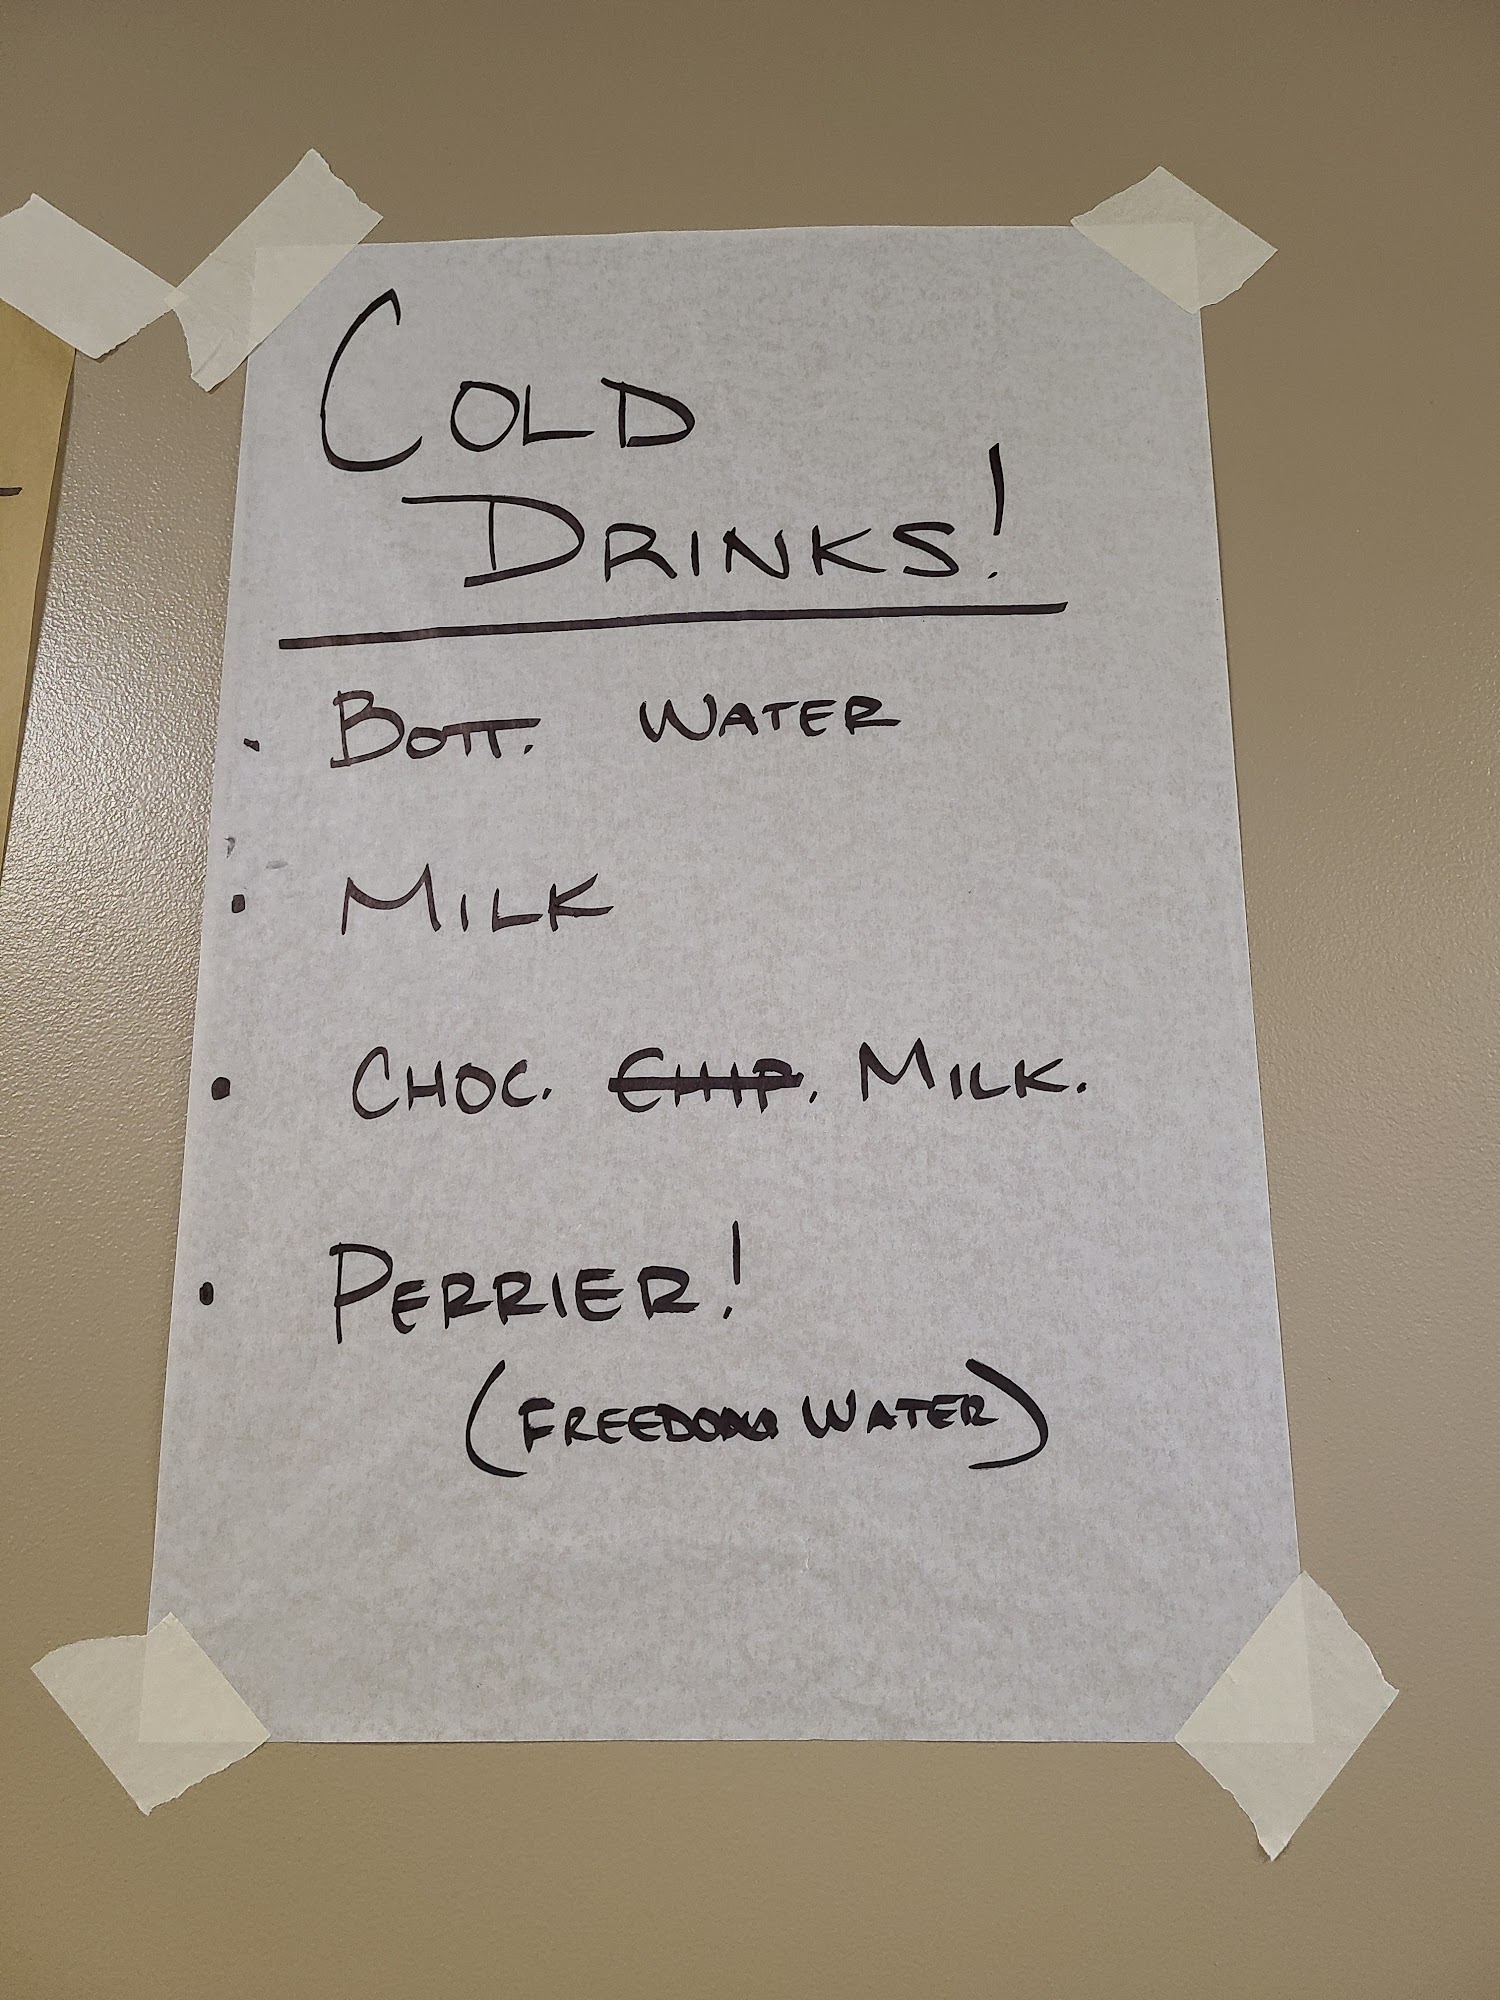 COLD
DRINKS!
· BOTT. WATER
· MILK
· CHOC. CHIP. MILK.
· PERRIER!
(FREEDOM WATER)